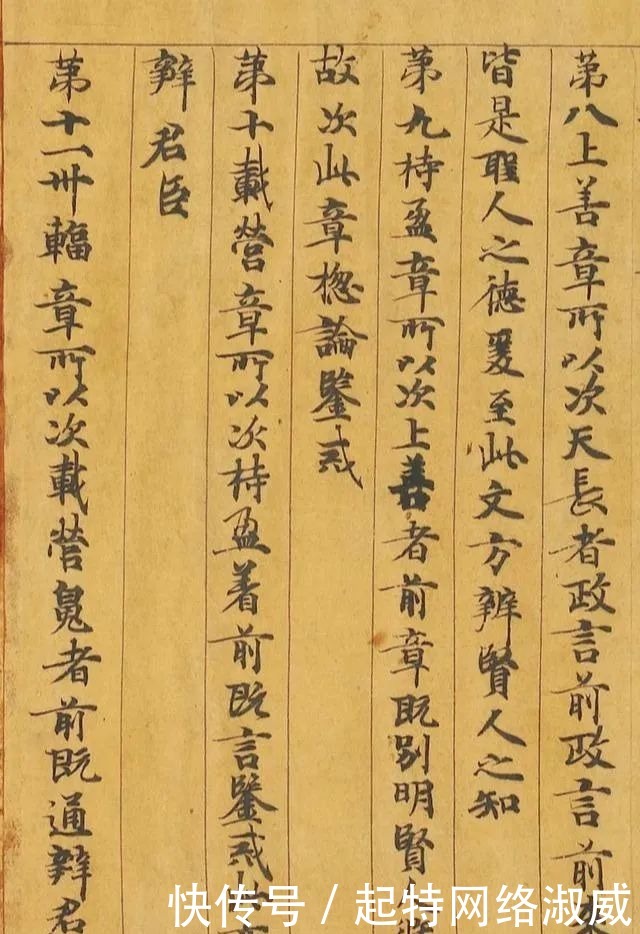 第八上善章所以次天長者政言前政言前
皆是聖人之徳爰至此文方辨賢人之知
第九持盈章所以次上善者前章既别明賢人
故次此章惣論鑒戒
第十載營章所以次持盈着前既言鑒戒此
辨君臣
第十一卅輻章所以次載營鬼者前既通辨君
快传号/起特网络淑威